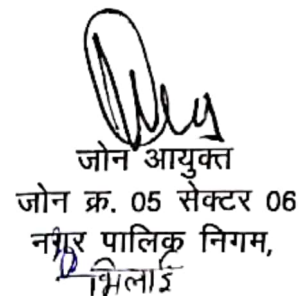 जोन आयुक्त
जोन क्र. 05 सेक्टर 06
नगर पालिक निगम,
भिलाई